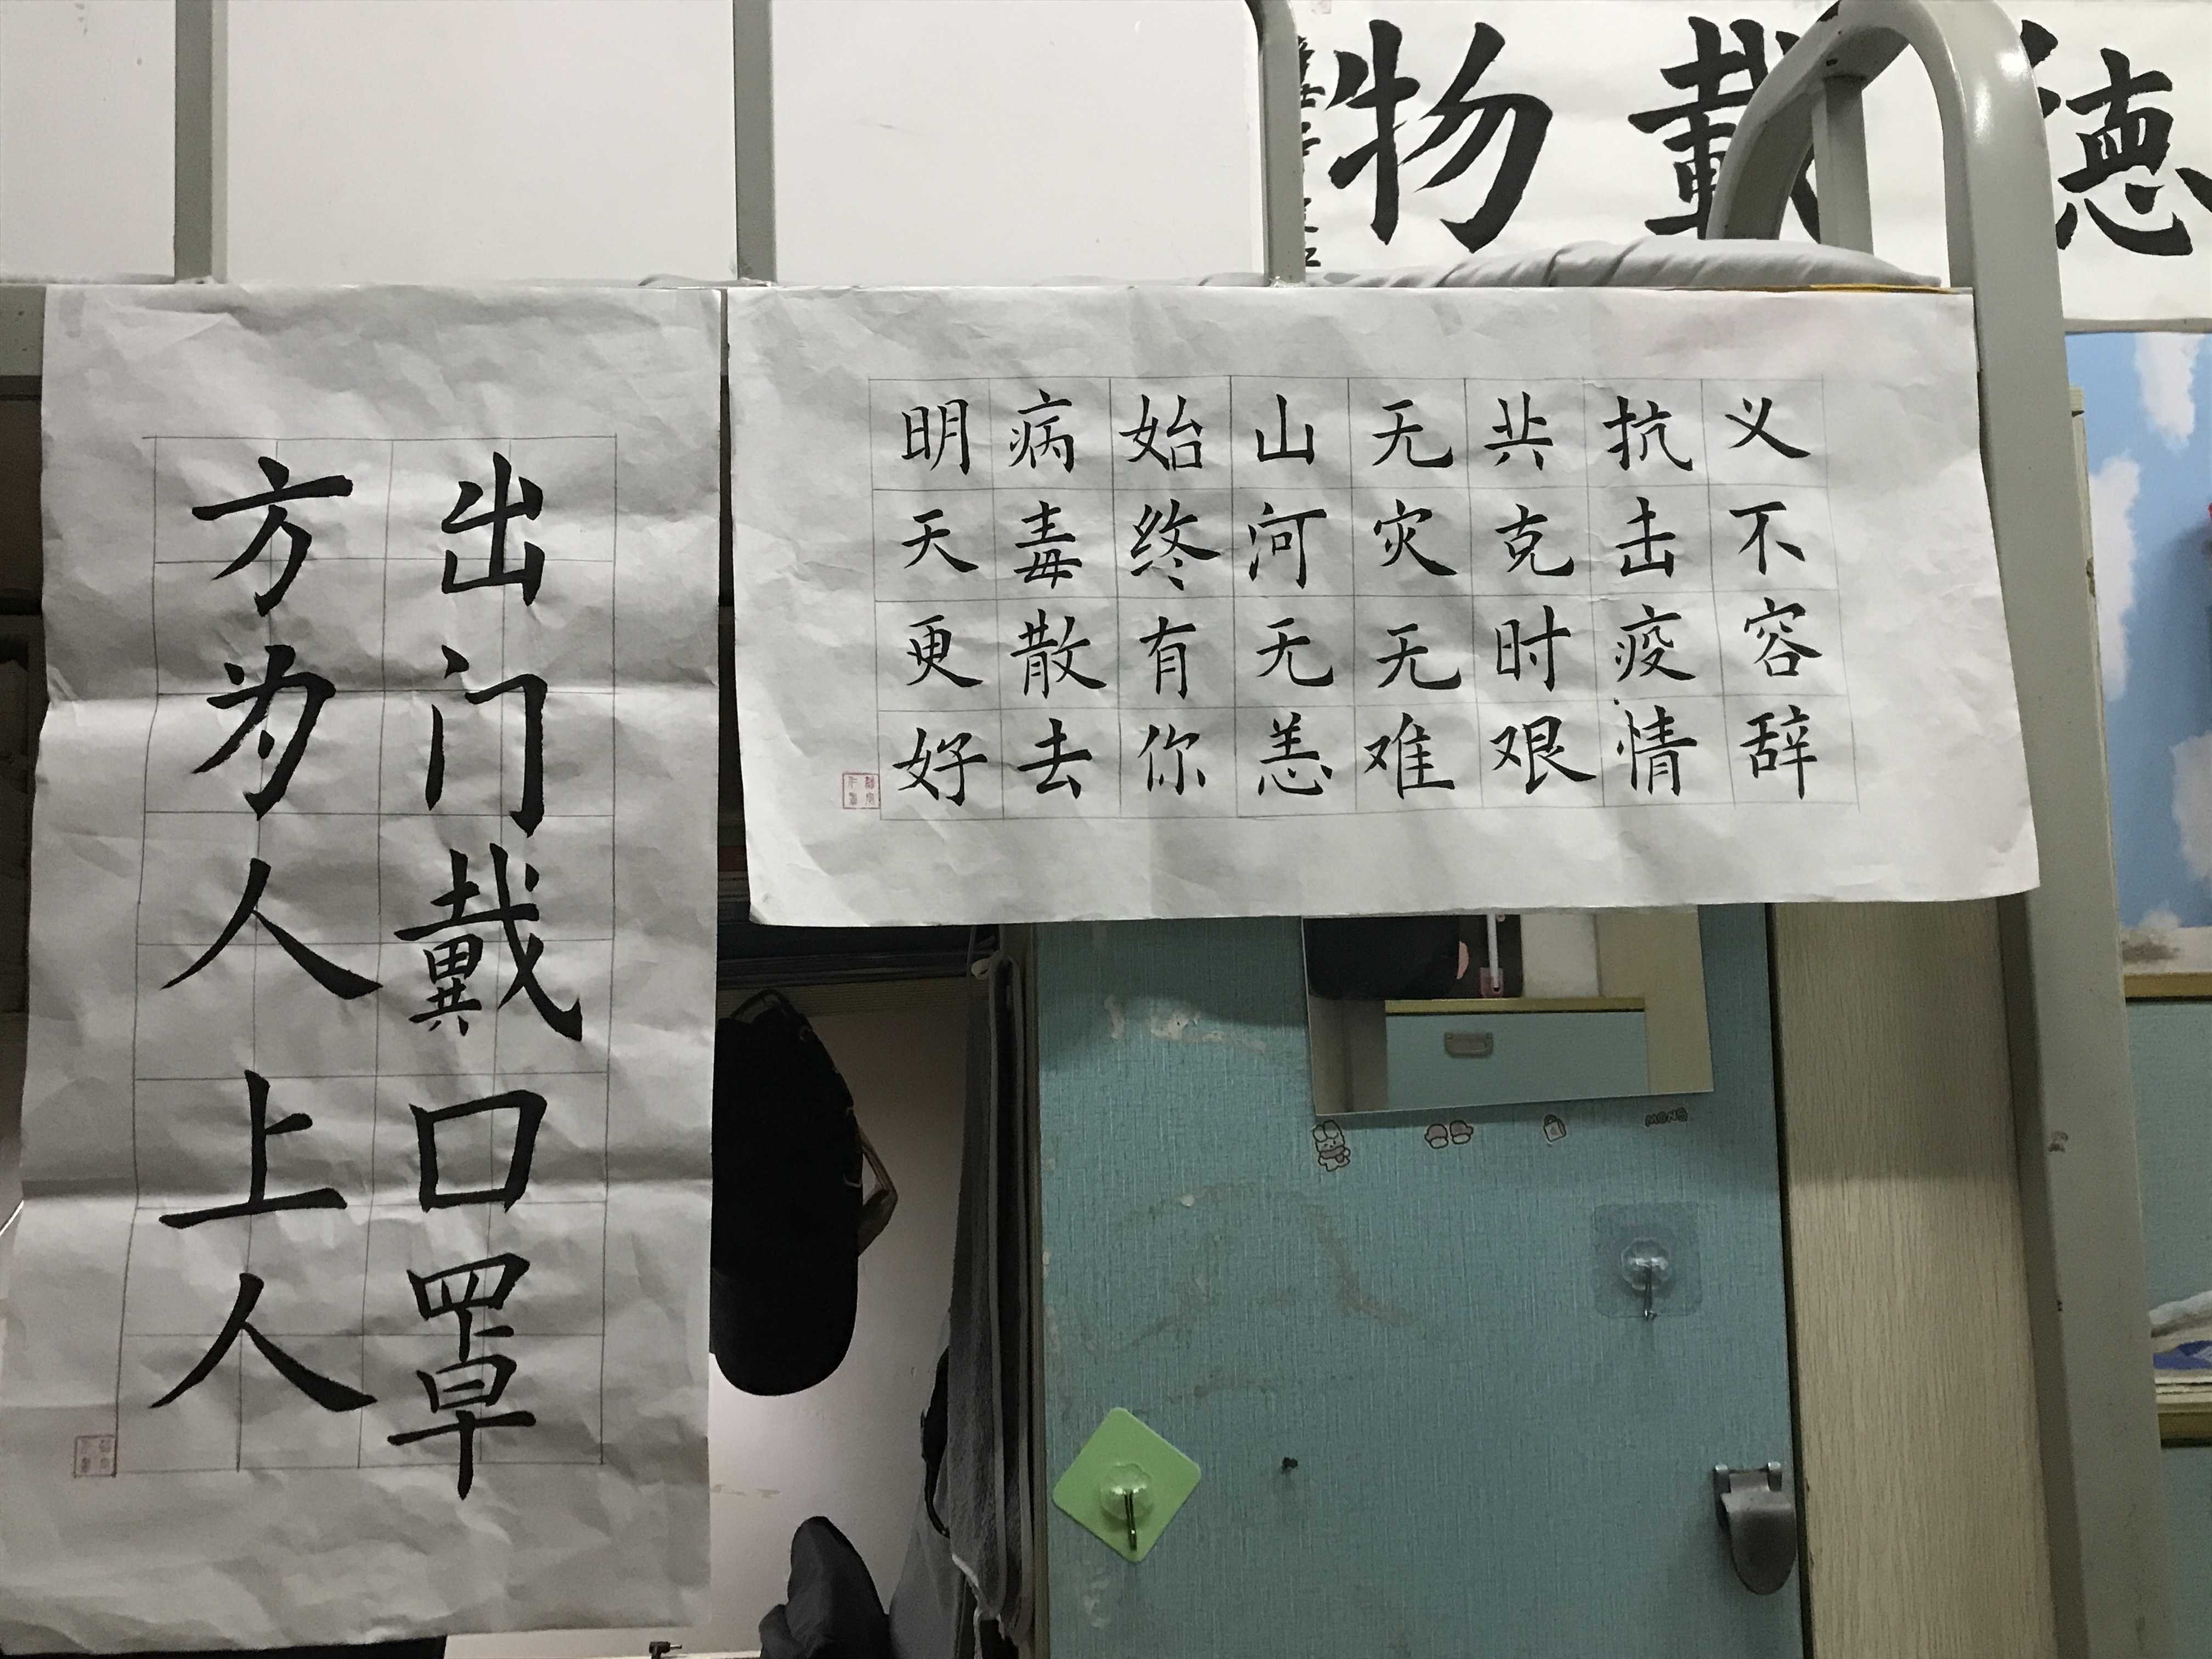 德載物
义不容辞
抗击疫情
共克时艰
无灾无难
山河无恙
始终有你
病毒散去
明天更好
出门戴口罩
方为人上人
MONS